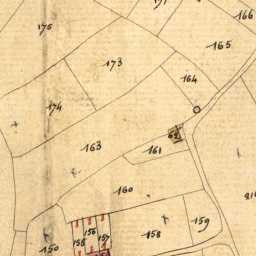 166
175
165
173
164
174
163
161
160
159
156
158
157
155
150